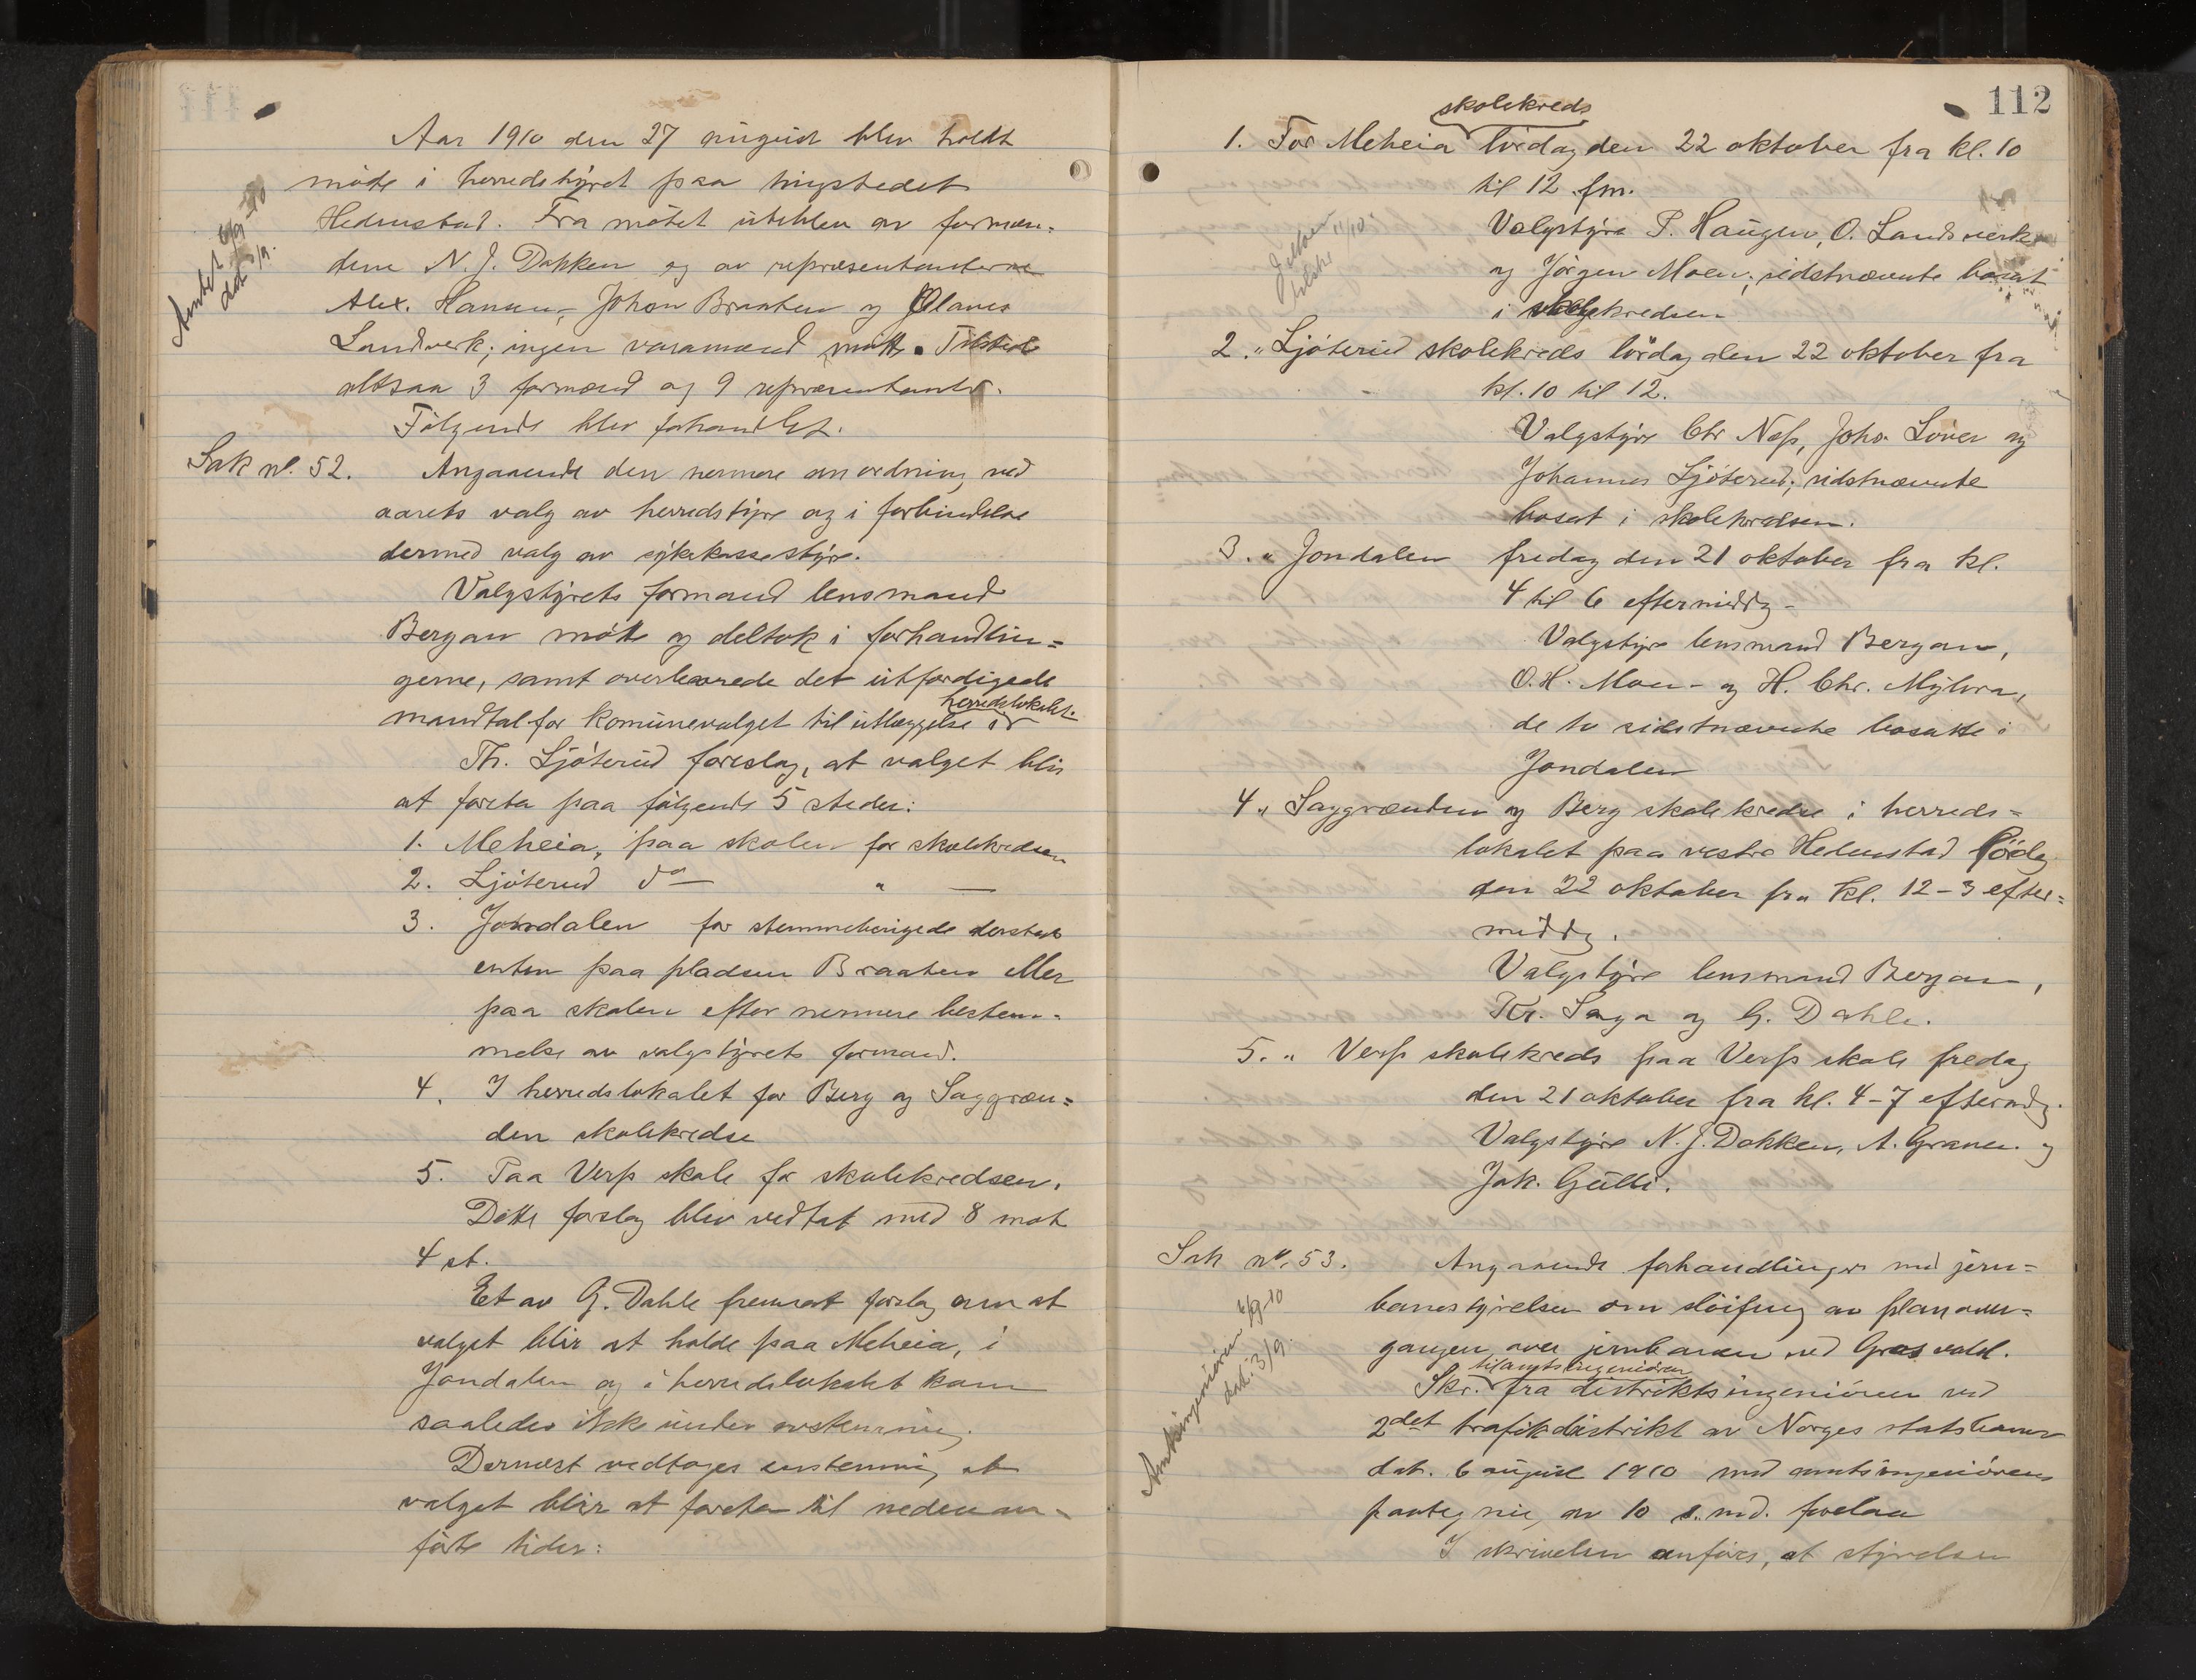 Aar 1910 den 27 august blev holdt
möte i herredstyret paa tingstedet
Hedenstad. Fra mötet uteblev av formæn=
dene N. J. Dokken og av repræsentanterne
Alex. Hansen, Johan Braaten og Olaves
Landverk; ingen varamænd mött. Tilstede
altsaa 3 formænd og 9 repræsentanter.
Fölgende blev forhandlet.
Sak no. 52. Angaaende den nærmere anordning ved
aarets valg av herredstyre og i forbindelse
dermed valg av sykekassestyre.
Valgstyrets formand lensmand
Bergan mötte og deltok i forhandlin=
gerne, samt overleverede det utfærdigede
herredslokalet.
mandtal for komunevalget til utlæggelse i
Th. Ljöterud foreslog, at valget blir
at foreta paa fölgende 5 steder:
1. Meheia, paa skolen for skolekredsen
2. Ljöterud do — " —
3. Jondalen for stemmeberigede dersteds
enten paa pladsen Braaten eller
paa skolen efter nærmere bestem=
melse av valgstyrets formand.
4. I herredslokalet for Berg og Saggræn=
den skolekredse
5. Paa Verp skole for skolekredsen.
Dette forslag blev vedtat med 8 mot
4 st.
Et av G. Dahle fremsat forslag om at
valget blir at holde paa Meheia, i
Jondalen og i herredslokalet kom
saaledes ikke under avstemning.
Dernæst vedtoges enstemmig at
valget blir at foreta til nedenan=
förte tider:
112
skolekreds
1. For Meheia lördag den 22 oktober fra kl. 10
til 12 fm.
Valgstyre P. Haugen, O. Landsverk
og Jörgen Moen; sidstnævnte bosat
i skolekredsen
2. " Ljöterud skolekreds lördag den 22 oktober fra
kl. 10 til 12.
Valgstyre Chr Næss, Johs. Lover og
Johannes Ljöterud; sidstnævnte
bosat i skolekredsen.
3. " Jondalen fredag den 21 oktober fra kl.
4 til 6 eftermiddg -
Valgstyre lensmand Bergan,
O. H. Moen - og H. Chr. Myhra,
de to sidstnævnte bosatte i
Jondalen
4 " Saggrænden og Berg skolekredse i herreds=
lokalet paa vestre Hedenstad lördag
den 22 oktober fra kl. 12-3 efter=
middg.
Valgstyre lensmand Bergan,
Kr. Saga og G. Dahle.
5. " Verp skolekreds paa Verp skole fredag
den 21 oktober fra kl. 4-7 eftermdg.
Valgstyre N. J. Dokken, A. Granen og
Jak. Gulli.
Sak no. 53. Angaaende forhandlinger med jern=
banestyrelsen om slöifning av planover=
gangen over jernbanen ved Grosvold.
til amtsingeniören
Skr. fra distriktsingeniören ved
2det trafikdistrikt av Norges statsbaner
dat. 6 august 1910 med amtsingeniörens
paategning av 10 s. md. forelaa
I skrivelsen anföres, at styrelsen
Amtsingeniören 6/9-10
dat. 3/9.